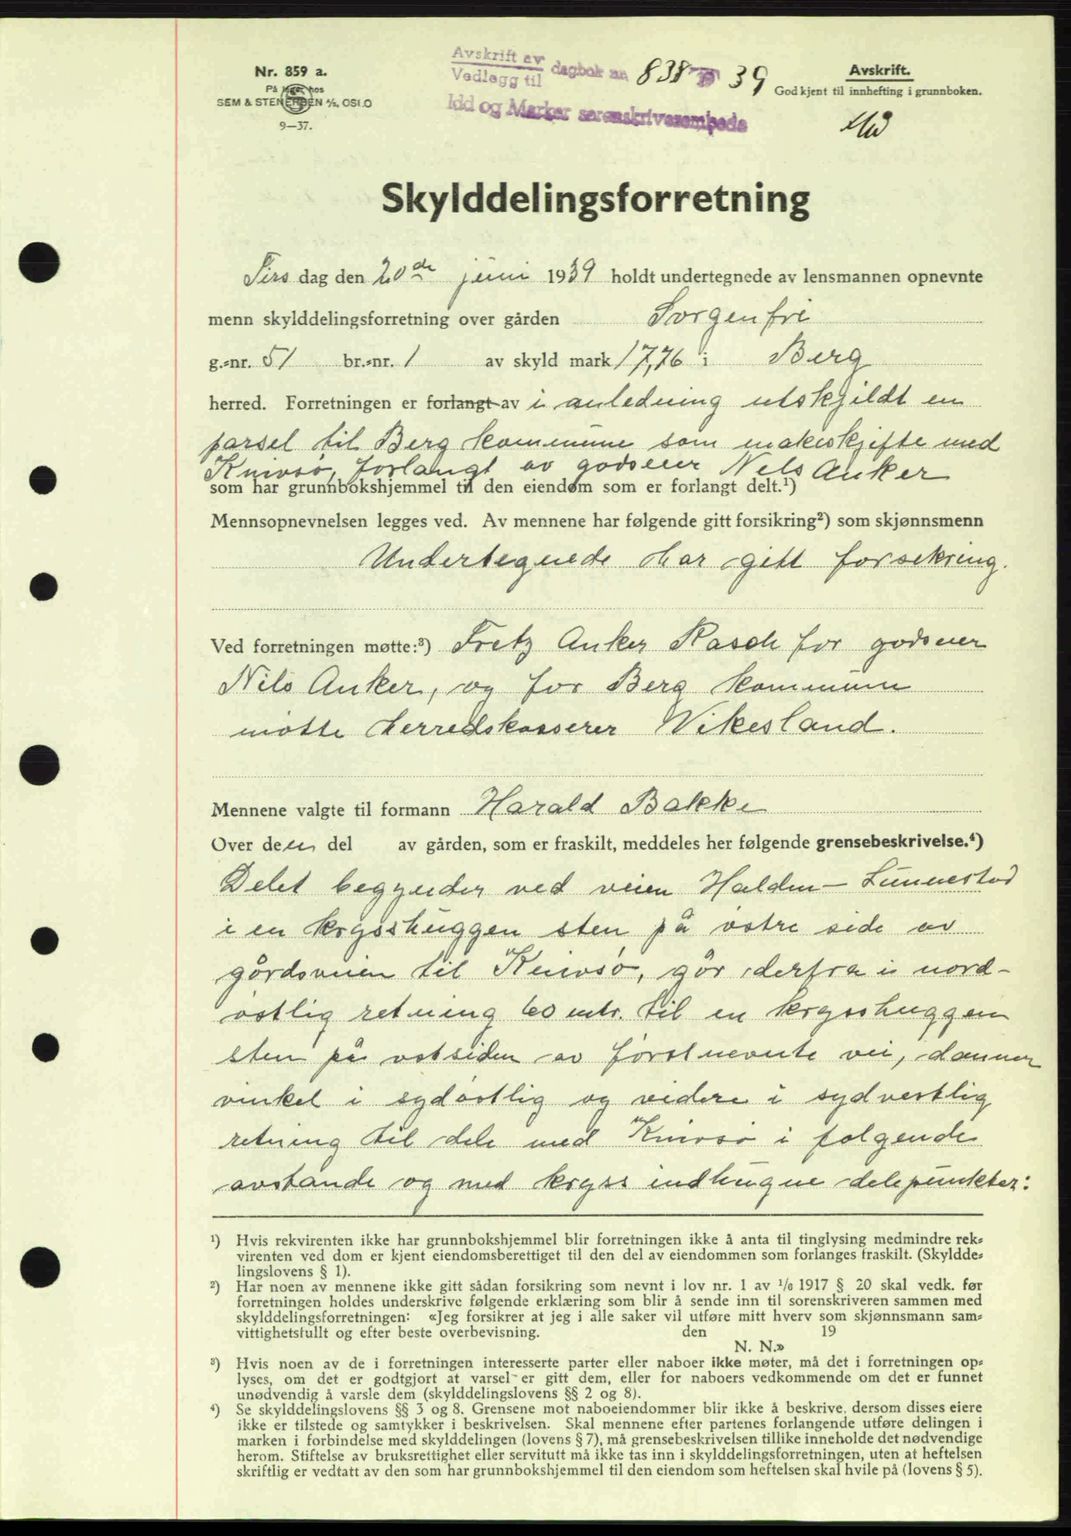 Nr. 859 a.
På lager hos
SEM & STENERSEN A/S, OSLO
9—37.
Avskrift av
Vedlegg til dagbok nr 838 39
Idd og Marker sorenskriverembede
Avskrift.
Godkjent til innhefting i grunnboken.
Skylddelingsforretning
Tirs dag den 20de juni 1939 holdt undertegnede av lensmannen opnevnte
menn skylddelingsforretning over gården Sorgenfri
g.=nr. 51 br.=nr. 1 av skyld mark 17,76 i Berg
herred. Forretningen er forlangt av i anledning utskjildt en
parsel til Berg kommune som makeskjifte med
Knivsø, forlangt av godseier Nels Anker
som har grunnbokshjemmel til den eiendom som er forlangt delt.¹)
Mennsopnevnelsen legges ved. Av mennene har følgende gitt forsikring²) som skjønnsmenn
Undertegnede har gitt forsekring.
Ved forretningen møtte:³) Fretz Anker Rasch for godseier
Nils Anker, og for Berg kommune
møtte herredskasserer Vikesland.
Mennene valgte til formann Harald Bakke
Over den del av gården, som er fraskilt, meddeles her følgende grensebeskrivelse.⁴)
Delet begynder ved veien Halden – Lunnestad
i en krysshuggen sten på østre side av
gårdsveien til Knivsø, går derfra i nord-
østlig retning 60 mtr. til en krysshuggen
sten på østsiden av førstnevnte vei, danner
vinkel i sydøstlig og videre i sydvestlig
retning til dele med Knivsø i følgende
avstande og med kryss indhugne delepunkter:
¹) Hvis rekvirenten ikke har grunnbokshjemmel blir forretningen ikke å anta til tinglysing medmindre rek=
virenten ved dom er kjent eiendomsberettiget til den del av eiendommen som forlanges fraskilt. (Skyldde=
lingslovens § 1).
²) Har noen av mennene ikke gitt sådan forsikring som nevnt i lov nr. 1 av 1/6 1917 § 20 skal vedk. før
forretningen holdes underskrive følgende erklæring som blir å sende inn til sorenskriveren sammen med
skylddelingsforretningen: «Jeg forsikrer at jeg i alle saker vil utføre mitt hverv som skjønnsmann sam=
vittighetsfullt og efter beste overbevisning. den 19
N. N.»
³) Hvis noen av de i forretningen interesserte parter eller naboer ikke møter, må det i forretningen op=
lyses, om det er godtgjort at varsel er gitt dem, eller for naboers vedkommende om det er funnet
unødvendig å varsle dem (skylddelingslovens §§ 2 og 8).
⁴) Se skylddelingslovens §§ 3 og 8. Grensene mot naboeiendommer blir ikke å beskrive, dersom disses eiere
ikke er tilstede og samtykker i beskrivelsen. Skal mennene efter partenes forlangende utføre delingen i
marken i forbindelse med skylddelingen (lovens § 7), må grensebeskrivelsen tillike inneholde det nødvendige
herom. Stiftelse av bruksrettighet eller servitutt må ikke tas inn i skylddelingsforretningen, uten at heftelsen
skriftlig er vedtatt av den som har grunnbokshjemmel til den eiendom som heftelsen skal hvile på (lovens § 5).